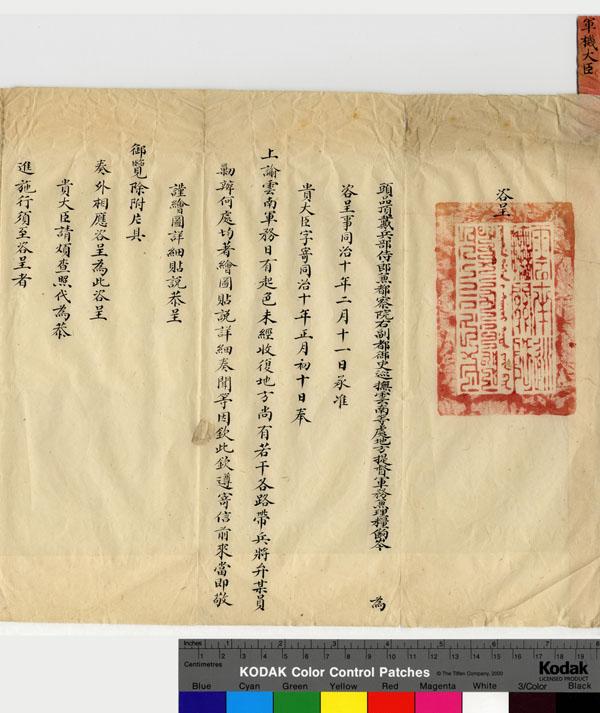 軍機大臣
咨呈
頭品頂戴兵部侍郎兼都察院右副都御史巡撫雲南等處地方提督軍務兼理糧餉岑 為
咨呈事同治十年二月十一日承准
貴大臣字寄同治十年正月初十日奉
上諭雲南軍務日有起色未經收復地方尚有若干各路帶兵將弁某員
勦辦何處均著繪圖貼說詳細奏聞等因欽此欽遵寄信前來當即敬
謹繪圖詳細貼說恭呈
御覽除附片具
奏外相應咨呈為此咨呈
貴大臣請煩查照代為恭
進施行須至咨呈者
Inches 1 2 3 4 5 6 7 8
Centimetres 1 2 3 4 5 6 7 8 9 10 11 12 13 14 15 16 17 18 19
KODAK Color Control Patches © The Tiffen Company, 2000 Kodak
LICENSED PRODUCT
Blue Cyan Green Yellow Red Magenta White 3/Color Black